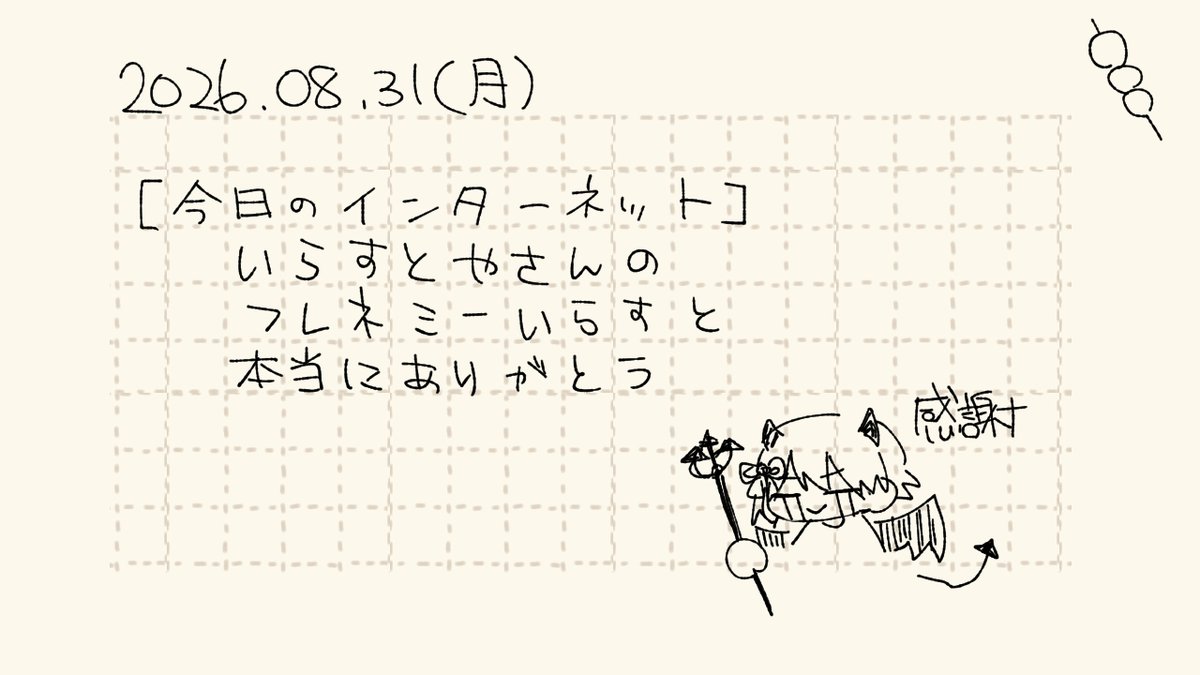 2026.08.31(月)
[今日のインターネット]
いらすとやさんの
フレネミーいらすと
本当にありがとう
感謝